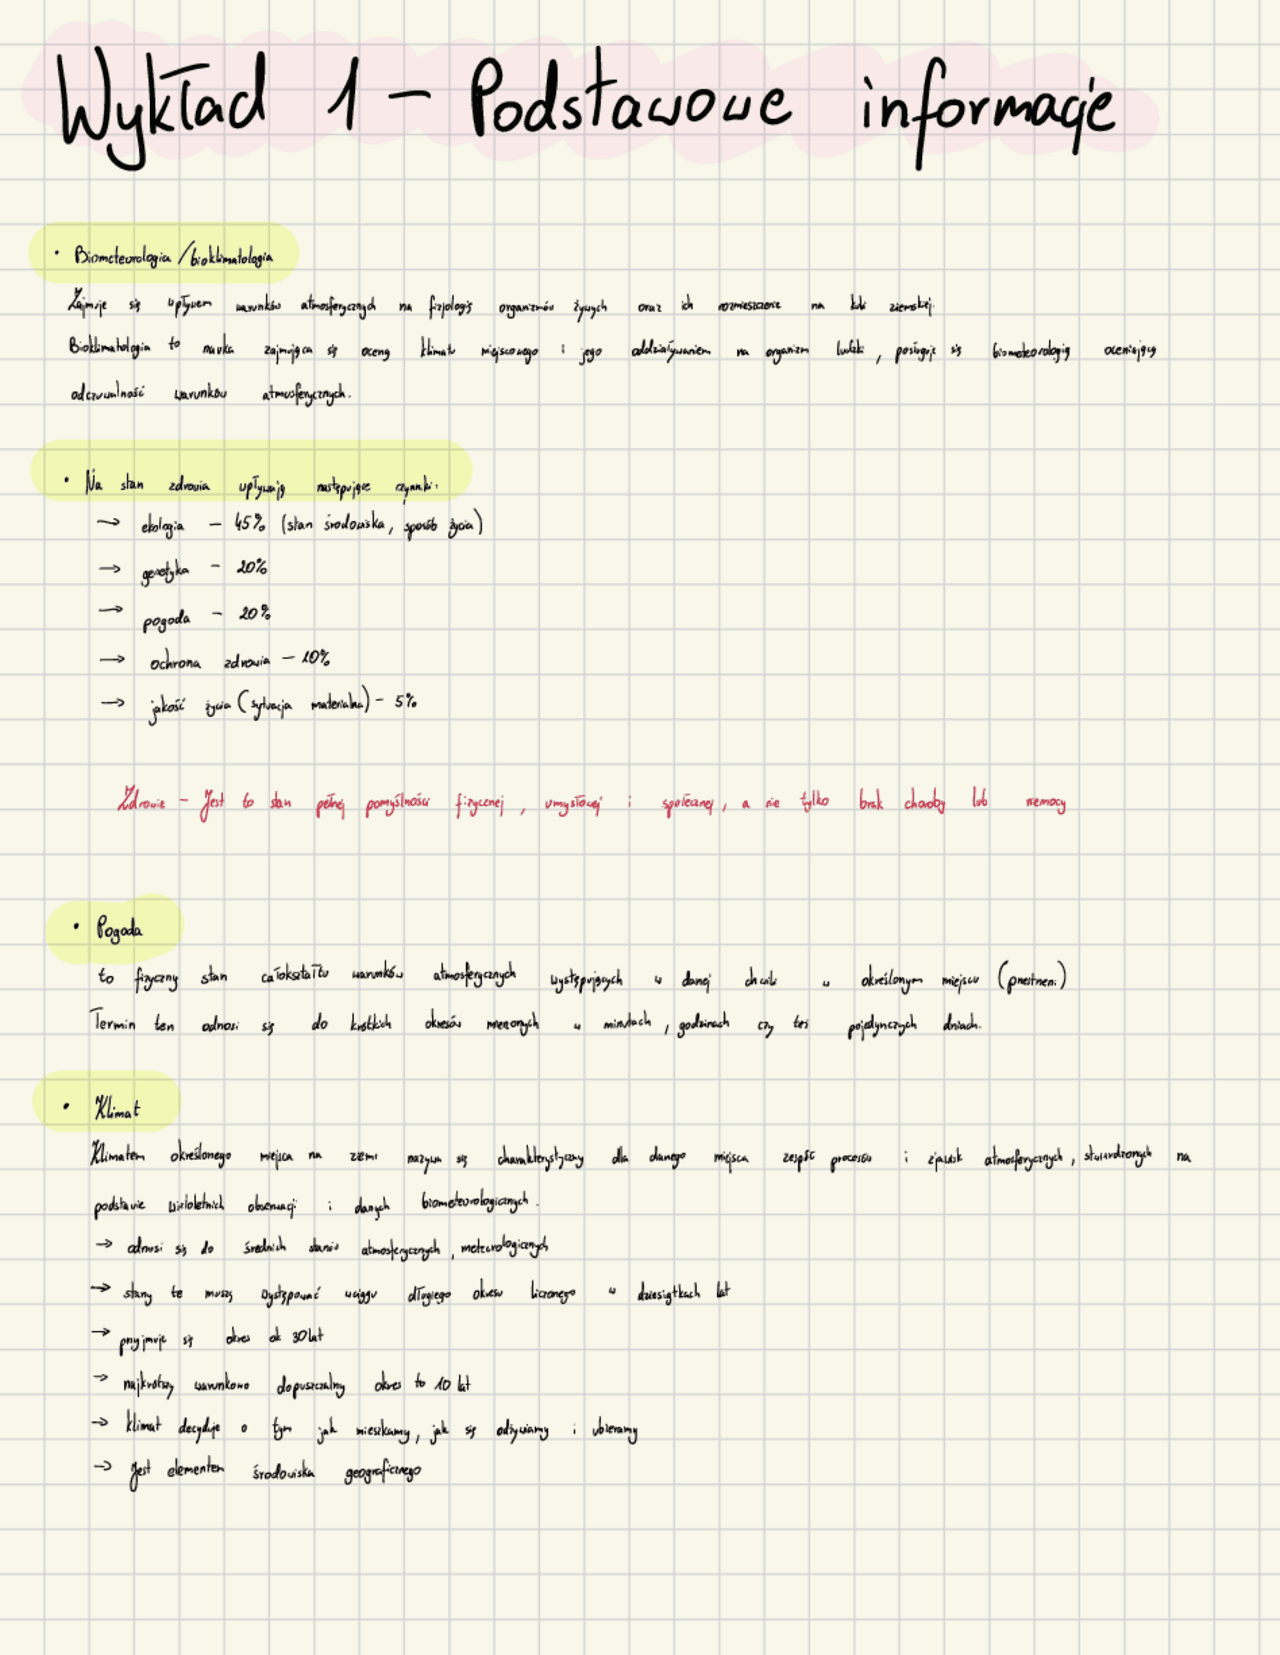 Wykład 1 – Podstawowe informacje
• Biometeorologia / bioklimatologia
Zajmuje się wpływem warunków atmosferycznych na fizjologię organizmów żywych oraz ich rozmieszczenie na kuli ziemskiej.
Bioklimatologia to nauka zajmująca się oceną klimatu miejscowego i jego oddziaływaniem na organizm ludzki, posługuje się biometeorologią oceniającą
odczuwalność warunków atmosferycznych.
• Na stan zdrowia wpływają następujące czynniki:
→ ekologia – 45% (stan środowiska, sposób życia)
→ genetyka – 20%
→ pogoda – 20%
→ ochrona zdrowia – 10%
→ jakość życia (sytuacja materialna) – 5%
Zdrowie – Jest to stan pełnej pomyślności fizycznej, umysłowej i społecznej, a nie tylko brak choroby lub niemocy
• Pogoda
to fizyczny stan całokształtu warunków atmosferycznych występujących w danej chwili w określonym miejscu (przestrzeni)
Termin ten odnosi się do krótkich okresów mierzonych w minutach, godzinach czy też pojedynczych dniach.
• Klimat
Klimatem określonego miejsca na ziemi nazywa się charakterystyczny dla danego miejsca zespół procesów i zjawisk atmosferycznych, stwierdzonych na
podstawie wieloletnich obserwacji i danych biometeorologicznych.
→ odnosi się do średnich stanów atmosferycznych, meteorologicznych
→ stany te muszą występować wciągu długiego okresu liczonego w dziesiątkach lat
→ przyjmuje się okres ok 30 lat
→ najkrótszy warunkowo dopuszczalny okres to 10 lat
→ klimat decyduje o tym jak mieszkamy, jak się odżywiamy i ubieramy
→ Jest elementem środowiska geograficznego